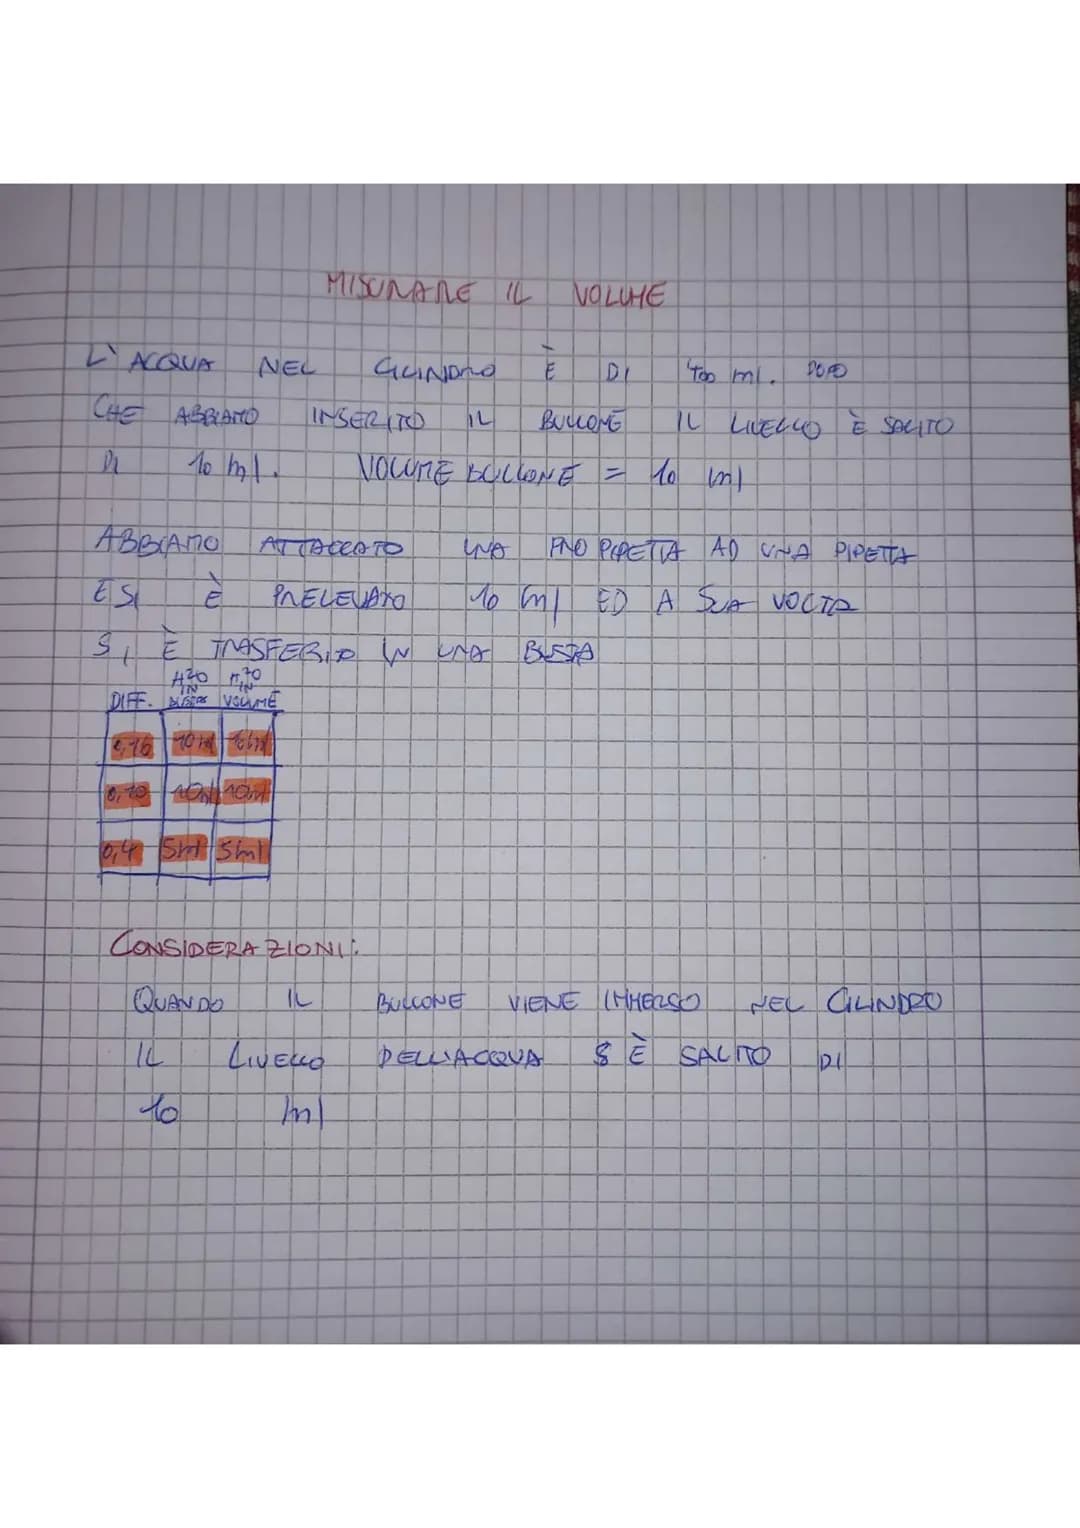 MISURARE IL VOLUME
L'ACQUA NEL CILINDRO È DI 400 ml. DOPO
CHE ABBIAMO INSERITO IL BULLONE IL LIVELLO È SALITO
DI 10 ml. VOLUME BULLONE = 10 ml
ABBIAMO ATTACCATO UNA PROPIPETTA AD UNA PIPETTA
E SI È PRELEVATO 10 ml ED A SUA VOLTA
SI È TRASFERITO IN UNA
DIFF. H2O IN H2O IN VOLUME
10ml
10ml 10ml
0,4 5ml 5ml
CONSIDERAZIONI:
QUANDO IL BULLONE VIENE IMMERSO NEL CILINDRO
IL LIVELLO DELL'ACQUA È SALITO DI
10 ml